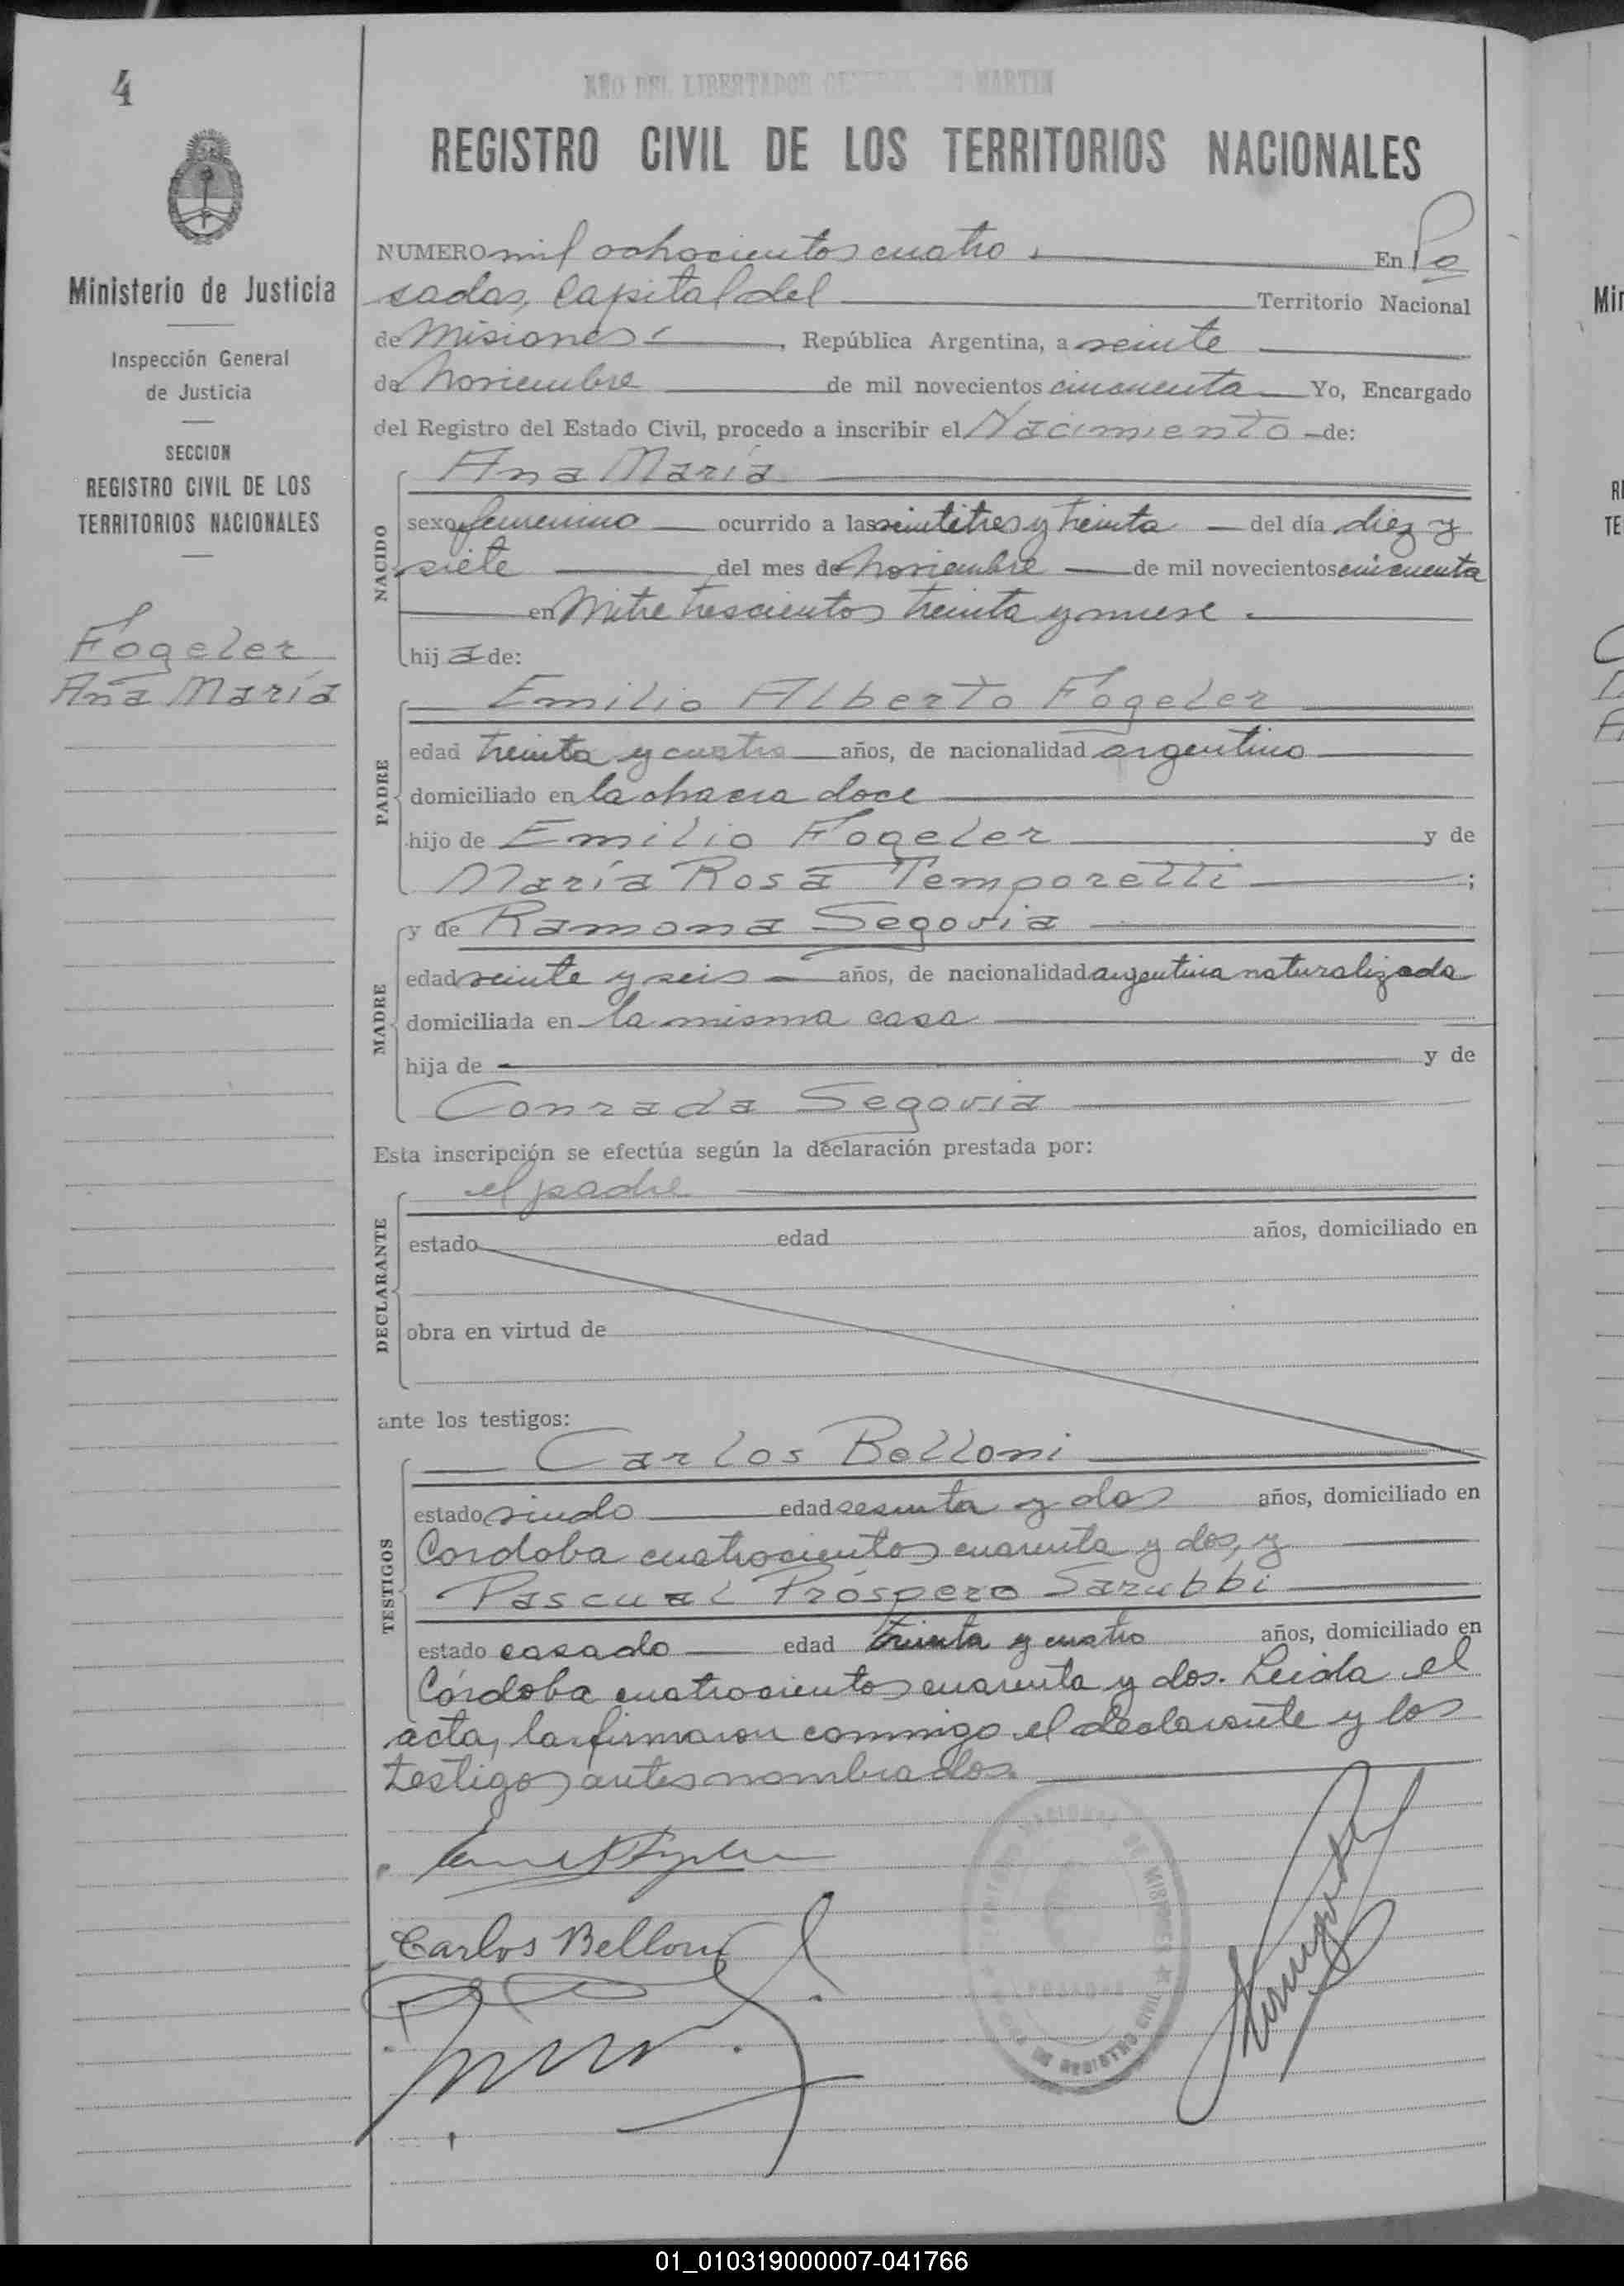 4
AÑO DEL LIBERTADOR GENERAL SAN MARTIN
REGISTRO CIVIL DE LOS TERRITORIOS NACIONALES
Ministerio de Justicia
Inspección General
de Justicia
SECCION
REGISTRO CIVIL DE LOS
TERRITORIOS NACIONALES
Fogeler
Ana María
NUMERO mil ochocientos cuatro En Po
sadas, Capital del Territorio Nacional
de Misiones, República Argentina, a veinte
de Noviembre de mil novecientos cincuenta Yo, Encargado
del Registro del Estado Civil, procedo a inscribir el Nacimiento de:
NACIDO
Ana María
sexo femenino ocurrido a las veintitres y treinta del día diez y
siete del mes de Noviembre de mil novecientos cincuenta
en Mitre trescientos treinta y nueve.
hij a de:
PADRE
Emilio Alberto Fogeler
edad treinta y cuatro años, de nacionalidad argentino
domiciliado en la chacra doce
hijo de Emilio Fogeler y de
María Rosa Temporetti ;
MADRE
y de Ramona Segovia
edad veinte y seis años, de nacionalidad argentina naturalizada
domiciliada en la misma casa
hija de y de
Conrada Segovia
Esta inscripción se efectúa según la declaración prestada por:
DECLARANTE
el padre
estado edad años, domiciliado en
obra en virtud de
ante los testigos:
TESTIGOS
Carlos Belloni
estado viudo edad sesenta y dos años, domiciliado en
Cordoba cuatrocientos cuarenta y dos, y
Pascual Próspero Sarubbi
estado casado edad treinta y cuatro años, domiciliado en
Córdoba cuatrocientos cuarenta y dos. Leida el
acta, la firmaron conmigo el declarante y los
testigos antes nombrados.
Carlos Belloni
REGISTRO CIVIL
01_010319000007-041766